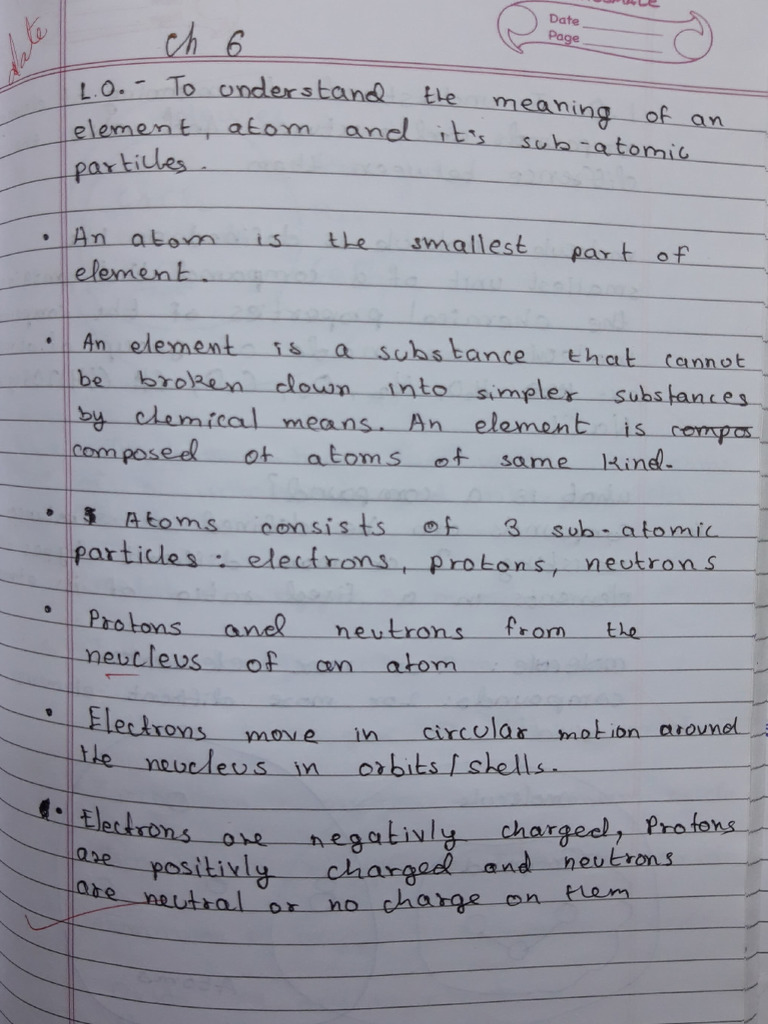 Date
Page
date
Ch 6
L.O. - To understand the meaning of an
element, atom and it's sub-atomic
particles.
• An atom is the smallest part of
element.
• An element is a substance that cannot
be broken down into simpler substances
by chemical means. An element is compos
composed of atoms of same kind.
• Atoms consists of 3 sub-atomic
particles: electrons, protons, neutrons
• Protons and neutrons from the
neucleus of an atom
• Electrons move in circular motion around
the neucleus in orbits/shells.
• Electrons are negativly charged, Protons
are positivly charged and neutrons
are neutral or no charge on them